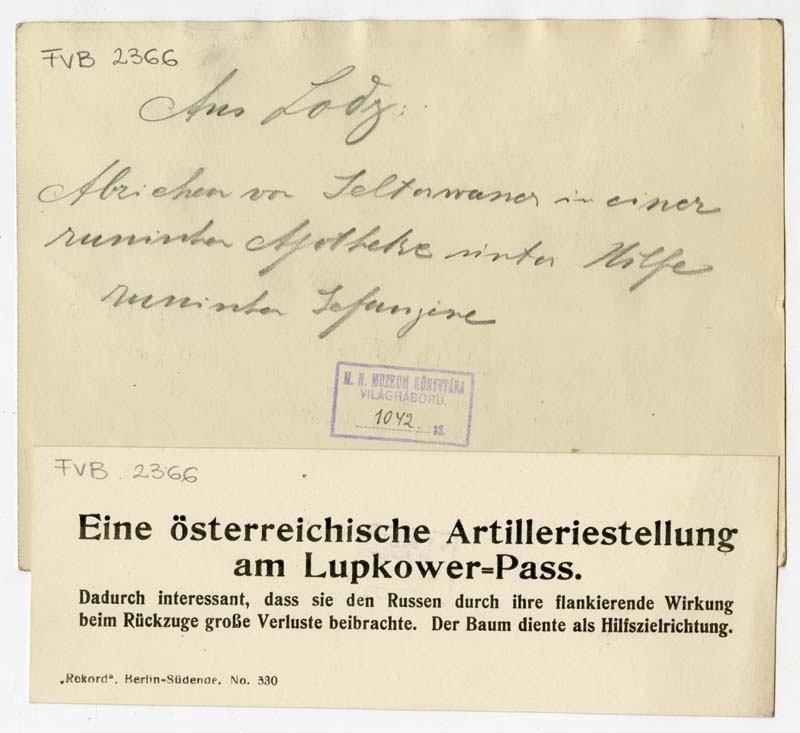 FVB 2366
Aus Lodz:
Abziehen von Selterwasser in einer
russischen Apotheke unter Hilfe
russischer
M. N. MUZEUM KÖNYVTÁRA
VILÁGHÁBORÚ.
1042. sz.
FVB 2366
Eine österreichische Artilleriestellung
am Lupkower=Pass.
Dadurch interessant, dass sie den Russen durch ihre flankierende Wirkung
beim Rückzuge große Verluste beibrachte. Der Baum diente als Hilfszielrichtung.
„Rekord“, Berlin-Südende. No. 330